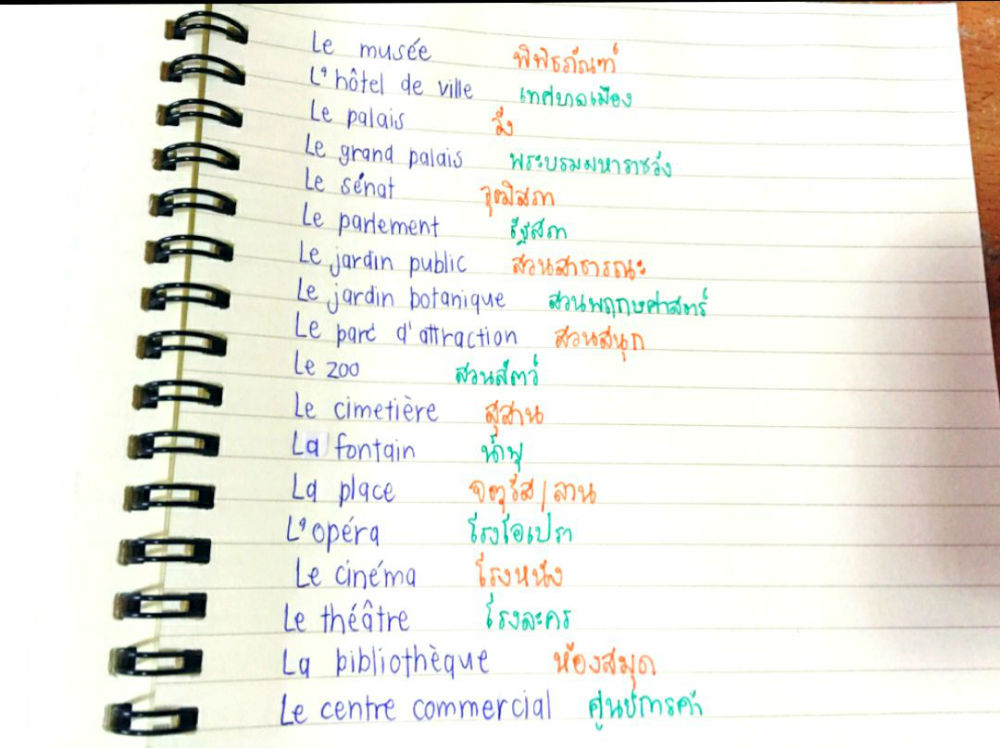 Le musée พิพิธภัณฑ์
L'hôtel de ville เทศบาลเมือง
Le palais วัง
Le grand palais พระบรมมหาราชวัง
Le sénat วุฒิสภา
Le parlement รัฐสภา
Le jardin public สวนสาธารณะ
Le jardin botanique สวนพฤกษศาสตร์
Le parc d'attraction สวนสนุก
Le zoo สวนสัตว์
Le cimetière สุสาน
La fontain น้ำพุ
La place จตุรัส/ลาน
L'opéra โรงโอเปรา
Le cinéma โรงหนัง
Le théâtre โรงละคร
La bibliothèque ห้องสมุด
Le centre commercial ศูนย์การค้า